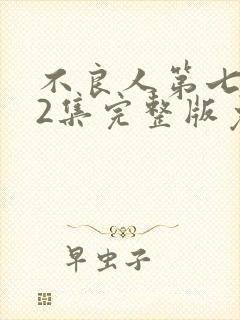 不良人第七
2集完整版
早虫子